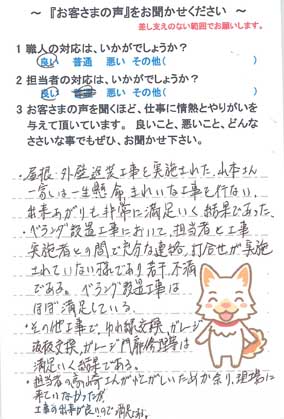 ～『お客さまの声』をお聞かせください～
差し支えのない範囲でお願いします。
1 職人の対応は、いかがでしょうか？
良い 普通 悪い その他( )
2 担当者の対応は、いかがでしょうか？
良い 悪い その他( )
3 お客さまの声を聞くほど、仕事に情熱とやりがいを
与えて頂いています。 良いこと、悪いこと、どんな
ささいな事でもぜひ、お聞かせ下さい。
・屋根・外壁塗装工事を実施された、山本さん
一家は一生懸命きれいな工事を行ない、
出来あがりも非常に満足いく結果であった。
・ベランダ設置工事において、担当者と工事
実施者との間で充分な連絡、打合せが実施
されていない様であり若干、不満
である。ベランダ設置工事は
ほぼ満足している。
・その他工事で、ガレージ
交換、ガレージ門扉修理等は
満足いく結果である。
・担当者の さんが忙がしいためか余り、現場に
来ていなかったが、
工事の出来が良いので満足